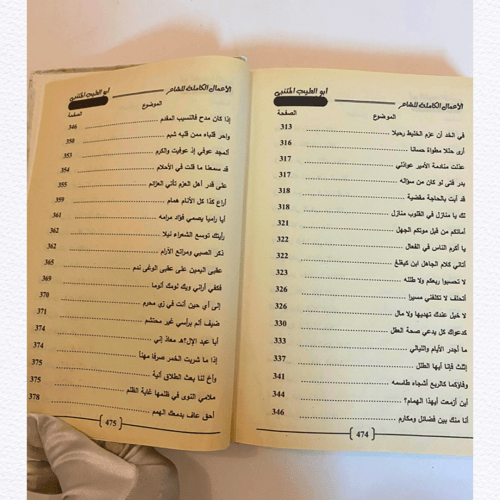 الأعمال الكاملة للشاعر أبو الطيب المتنبي
الموضوع الصفحة
في الخد أن عزم الخليط رحيلا 313
أرى حللا مطواة حسانا 316
عذلت منادمة الأمير عواذلي 317
بدر فتى لو كان من سؤاله 317
قد أبت بالحاجة مقضية 318
لك يا منازل في القلوب منازل 318
أماتكم من قبل موتكم الجهل 321
يا أكرم الناس في الفعال 322
أتاني كلام الجاهل ابن كيغلغ 322
لا تحسبوا ربعكم ولا طلله 323
أتحلف لا تكلفني مسيرا 326
لا خيل عندك تهديها ولا مال 326
كدعواك كل يدعي صحة العقل 330
ما أجدر الأيام والليالي 333
إثلث فإنا أيها الطلل 337
وفاؤكما كالربع أشجاه طاسمه 341
أين أزمعت أيهذا الهمام؟ 344
أنا منك بين فضائل ومكارم 346
474
الأعمال الكاملة للشاعر أبو الطيب المتنبي
الموضوع الصفحة
إذا كان مدح فالنسيب المقدم 346
واحر قلباه ممن قلبه شبم 350
المجد عوفي إذ عوفيت والكرم 353
قد سمعنا ما قلت في الأحلام 354
على قدر أهل العزم تأتي العزائم 355
أراع كذا كل الأنام همام 359
أيا راميا يصمي فؤاد مرامه 361
رأيتك توسع الشعراء نيلا 362
ذكر الصبي ومراتع الآرام 362
عقبى اليمين على عقبى الوغى ندم 365
فكفي أراني ويك لومك ألوما 369
إلى أي حين أنت في زي محرم 370
ضيف ألم برأسي غير محتشم 371
أبا عبد الإل‍ه معاذ إني 374
إذا ما شربت الخمر صرفا مهنأ 374
وأخ لنا بعث الطلاق ألية 375
ملامي النوى في ظلمها غاية الظلم 375
أحق عاف بدمعك الهمم 378
475